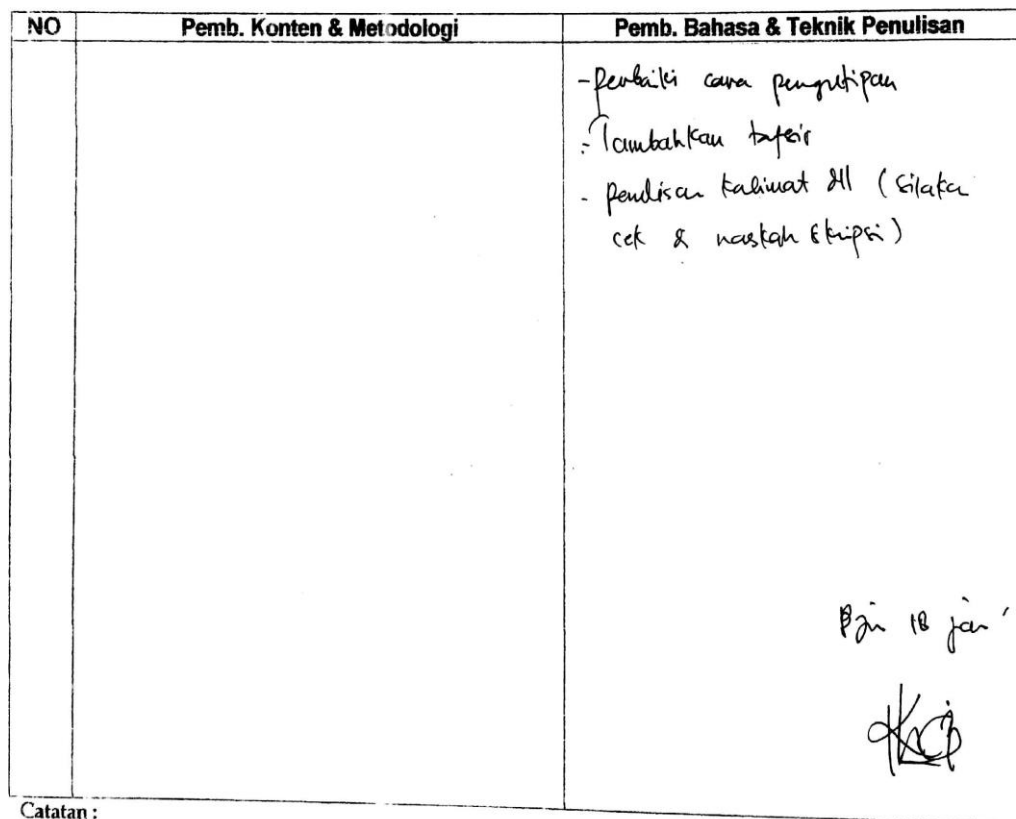 NO Pemb. Konten & Metodologi Pemb. Bahasa & Teknik Penulisan
- perbaiki cara pengutipan
- Tambahkan tafsir
- penulisan kalimat dll (silaka
cek & naskah skripsi)
18 jan
Catatan :